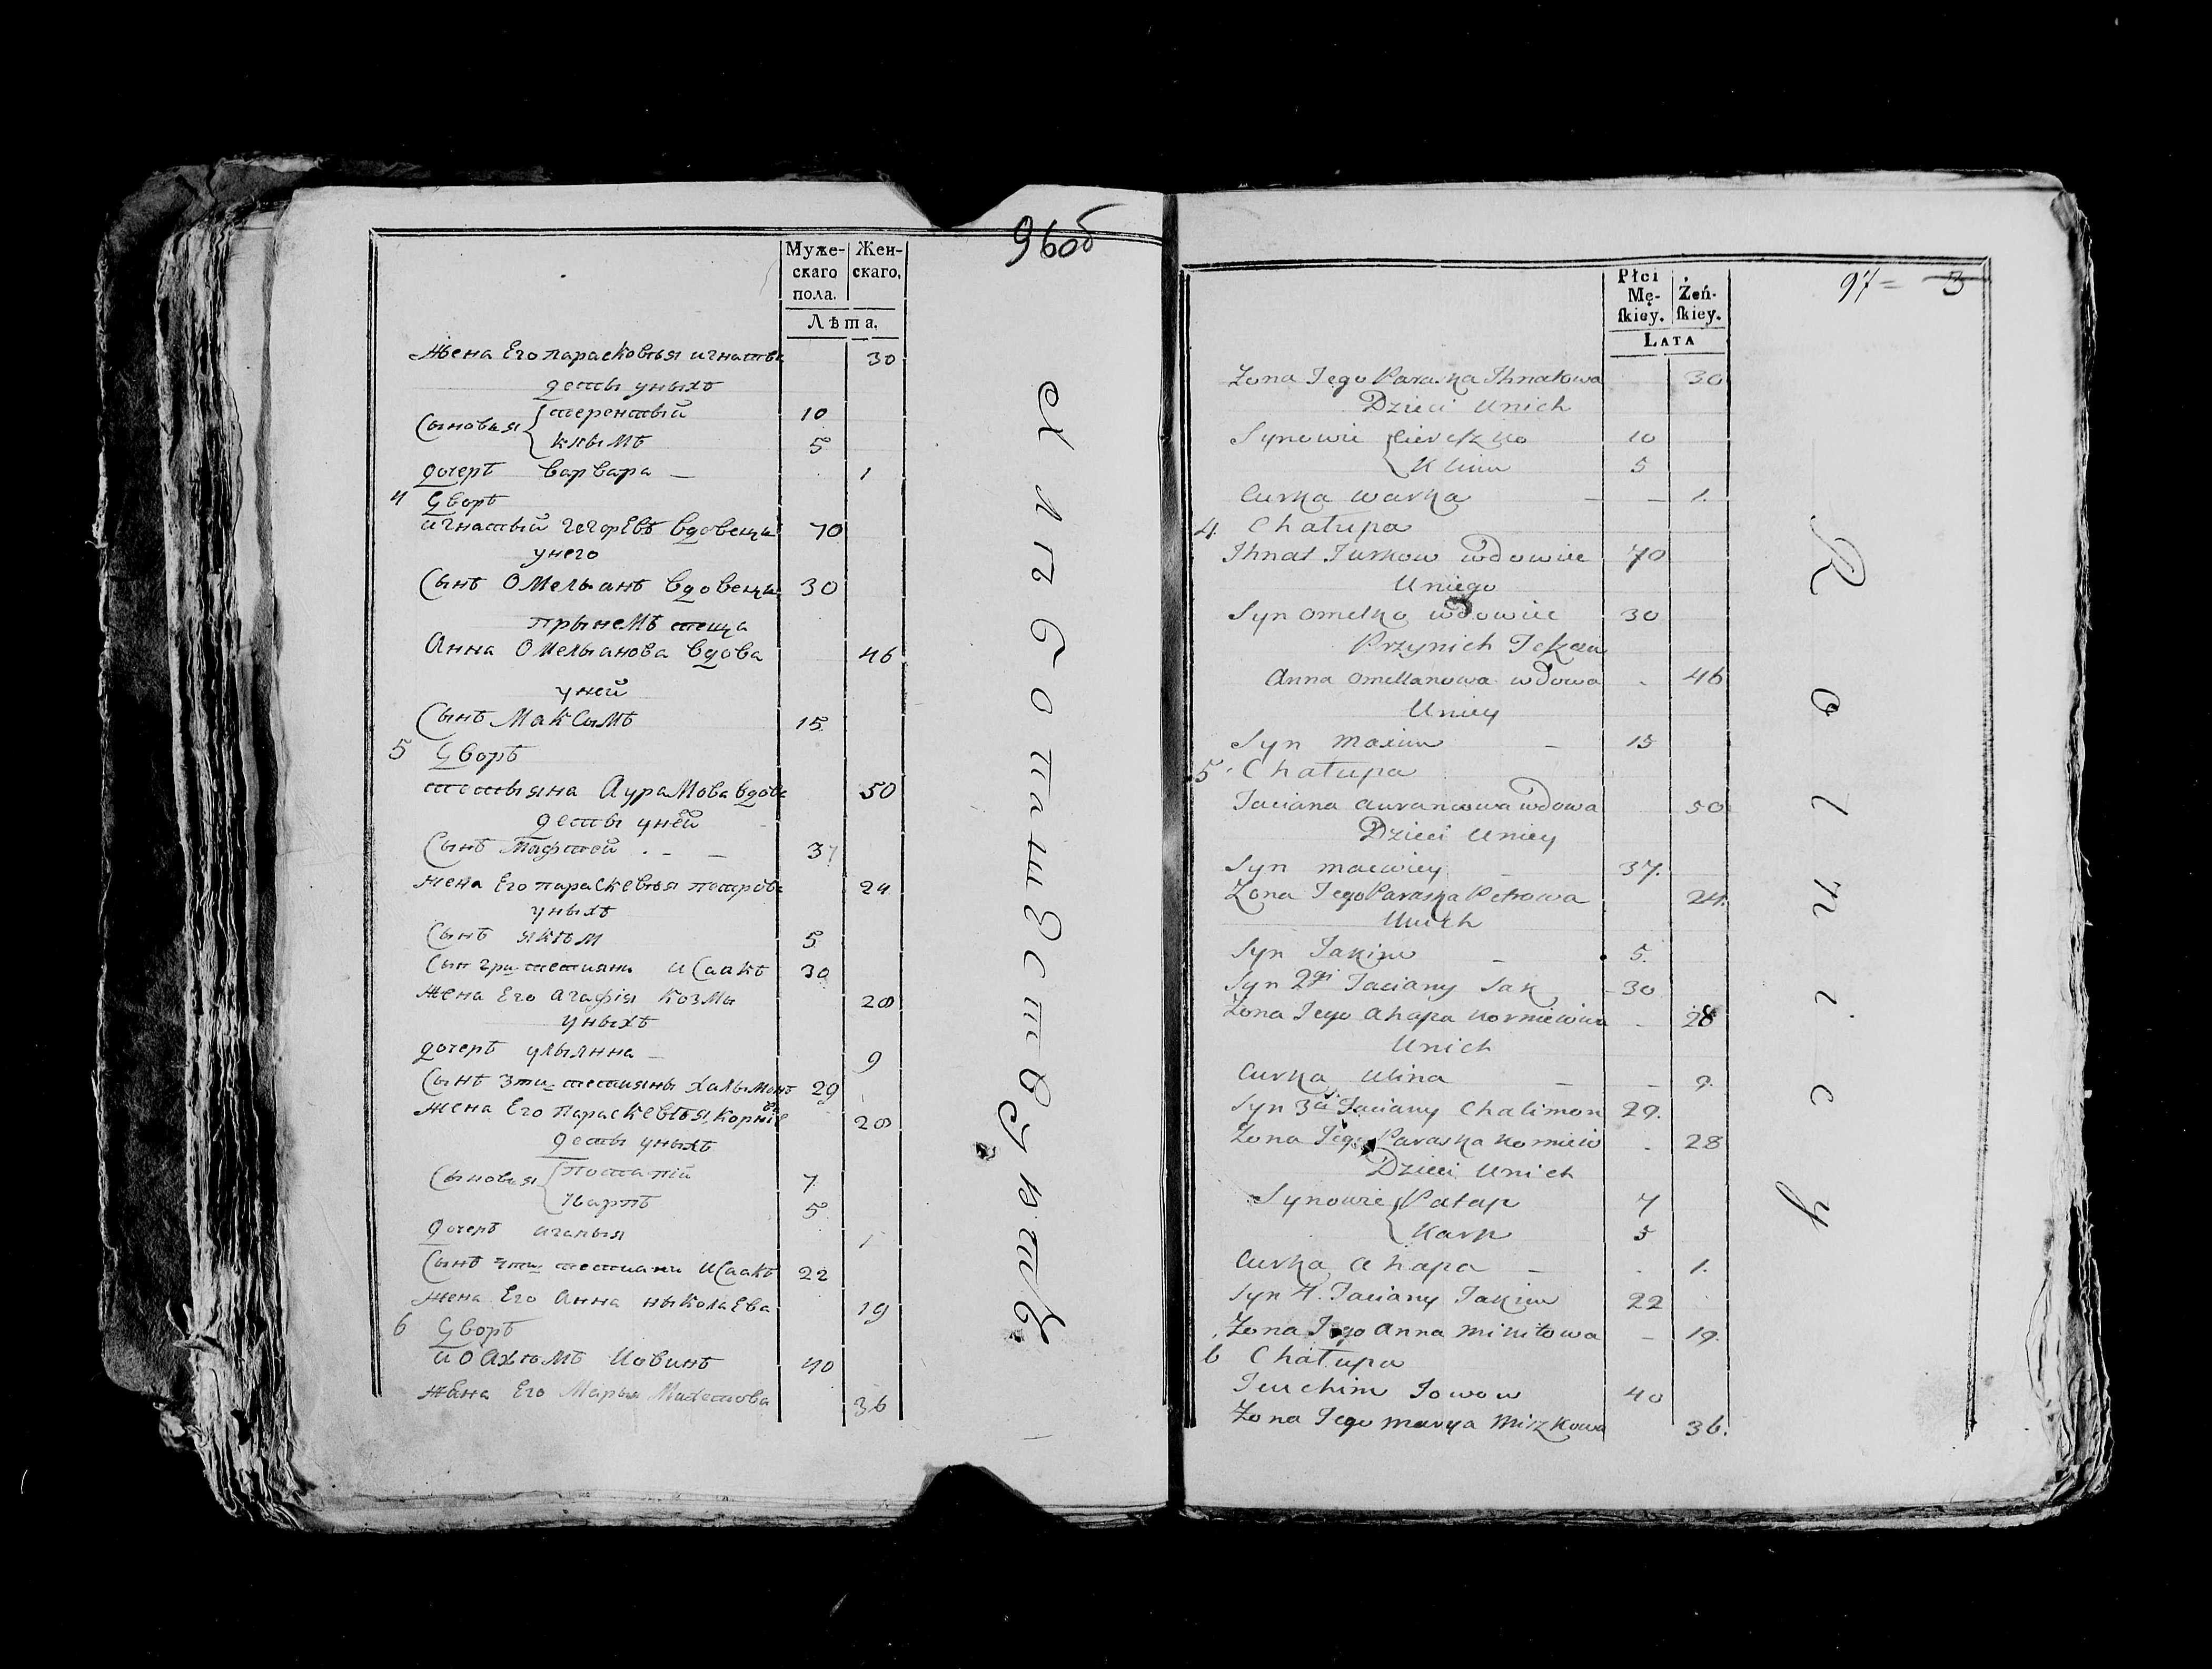 96об
Муже- Жен-
скаго скаго,
пола.
Лѣта,
Жена Его парасковья игнатва 30
дети уныхъ
Сыновья { терентый 10
клымъ 5
дочеръ варвара — 1
4 Дворъ
игнатый гегорЕвъ вдовецъ 70
унего
Сынъ Омельянъ вдовецъ 30
прынемъ теща
Анна Омельанова вдова 46
уней
Сынъ Максымъ 15
5 Дворъ
татыяна АураМова вдова 50
деты уней
Сынъ Мафтей . — — 37
жена Его параскевья петрова 24
уныхъ
Сынъ якым 5
Сын гри татияни иСаакъ 30
Жена Его агафія козмы 28
уныхъ
дочеръ улыянна — 9
Сынъ 3ти татияны халымонъ 29
жена Его параскевья, корнѣева 28
деты уныхъ
Сыновья { потапій 7
Карпъ 5
дочеръ агапыя 1
Сынъ 4ти татиани иСаакъ 22
жена Его Анна ныколаЕва 19
6 Дворъ
иОахымъ Иовинъ 40
жена Его Марыя 36
97 = 3
Płci
Mę- Żeń-
ſkiey. ſkiey.
LATA
Żona Jego Paraska Jhnatowa 30
Dzieci Unich
Synowie { Cereszko 10
Klim 5
Curka Warka — — 1.
4. Chałupa
Jhnat Jurkow wdowiec 70
Uniego
Syn Omelko wdowiec 30
Przynich Teszcza
Anna Omellanowa wdowa . 46
Uniey
Syn Maxim — 15
5. Chałupa
Taciana Auramowa wdowa 50
Dzieci Uniey
Syn Macwiey 37.
Zona Jego Paraska Petrowa 24.
Unich
Syn Jakim — 5.
Syn 2gi Taciany Jak 30
Żona Jego Ahapa Korniewna . 28
Unich
Curka Ulina — — 9.
Syn 3ci Taciany Chalimon 29.
Żona Jego Paraska Korniew . 28
Dzieci Unich
Synowie { Patap 7
Karp 5
Curka Ahapa — . 1.
Syn 4. Taciany Jakim 22
Żona Jego Anna Mikitowa — 19.
6 Chałupa
Jeuchim Jowow 40
Żona Jego Marya Miszkowa 36.
Rolnicy